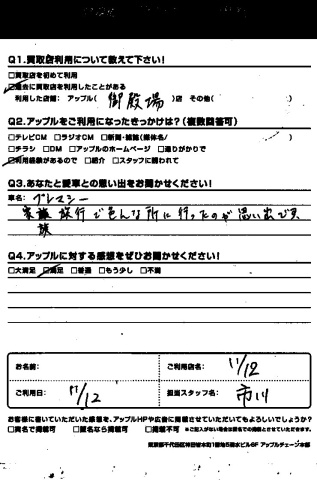 Q1.買取店利用について教えて下さい!
□買取店を初めて利用
☑過去に買取店を利用したことがある
利用した店舗: アップル( 御殿場 )店 その他( )
Q2.アップルをご利用になったきっかけは?(複数回答可)
□テレビCM □ラジオCM □新聞・雑誌(媒体名/ )
□チラシ □DM □アップルのホームページ □通りがかりで
☑利用経験があるので □紹介 □スタッフに誘われて
Q3.あなたと愛車との思い出をお聞かせください!
車名: プレマシー
家族旅行で色んな所に行ったのが思い出です
族
Q4.アップルに対する感想をぜひお聞かせください!
□大満足 ☑満足 □普通 □もう少し □不満
お名前:
ご利用店名: 11/12
ご利用日: 11/12
担当スタッフ名: 市川
お客様に書いていただいた感想を、アップルHPや広告に掲載させていただいてもよろしいでしょうか?
□実名で掲載可 □匿名なら掲載可 □掲載不可 ※ご記入がない場合は匿名での掲載とさせていただきます。
東京都千代田区神田岩本町1番地5清水ビル6F アップルチェーン本部